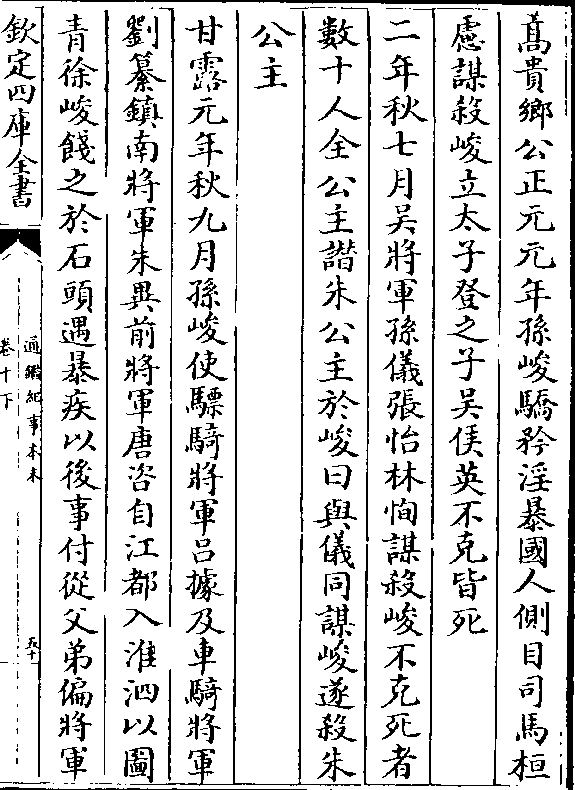 髙貴鄉公正元元年孫峻驕矜淫暴國人側目司馬桓
慮謀殺峻立太子登之子吳侯英不克皆死
二年秋七月吳將軍孫儀張怡林恂謀殺峻不克死者
數十人全公主譖朱公主於峻曰與儀同謀峻遂殺朱
公主
甘露元年秋九月孫峻使驃騎將軍吕據及車騎將軍
劉纂鎮南將軍朱異前將軍唐咨自江都入淮泗以圖
青徐峻餞之於石頭遇暴疾以後事付從父弟偏將軍
欽定四庫全書
通鑑紀事本末
卷十下
五十